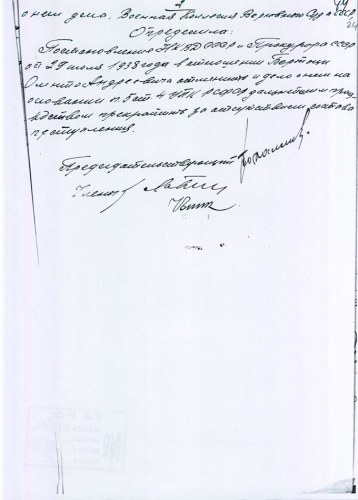 2
о нем дела, Военная Коллегия Верховного Суда СССР
Определила:
Постановление НКВД СССР и Прокурора СССР
от 29 июля 1938 года в отношении
Андреевича отменить и дело о нем на
основании п.5 ст. 4 УПК РСФСР дальнейшим произ
водством прекратить за отсутствием состава
преступления.
Председательствующий
Члены